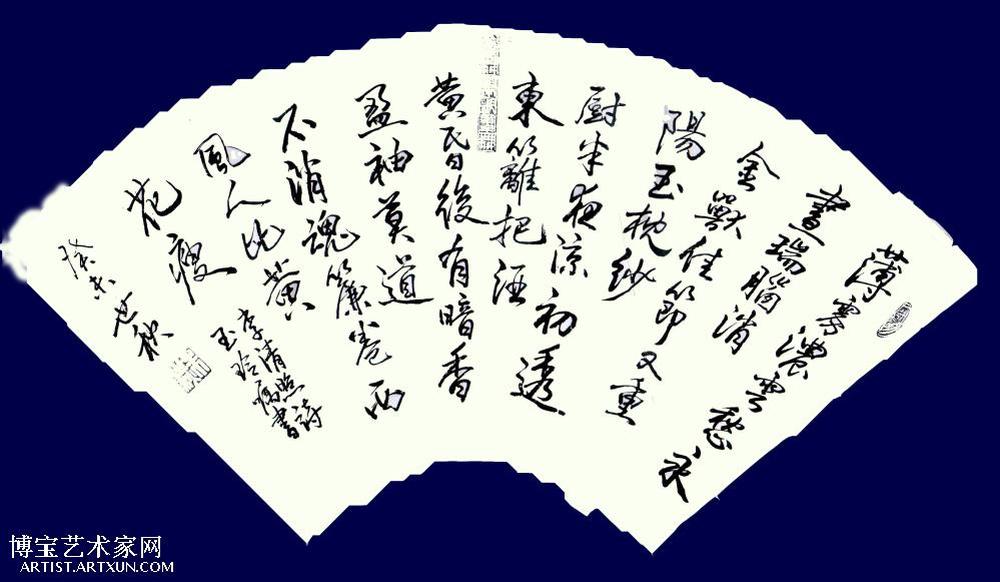 薄霧濃雲愁永
晝瑞腦消
金獸佳節又重
陽玉枕紗
厨半夜凉初透
東籬把酒
黃昬後有暗香
盈袖莫道
不消魂簾卷西
風人比黃
花瘦
李清照詩
玉玲囑書
癸未世秋
博宝艺术家网
ARTIST.ARTXUN.COM